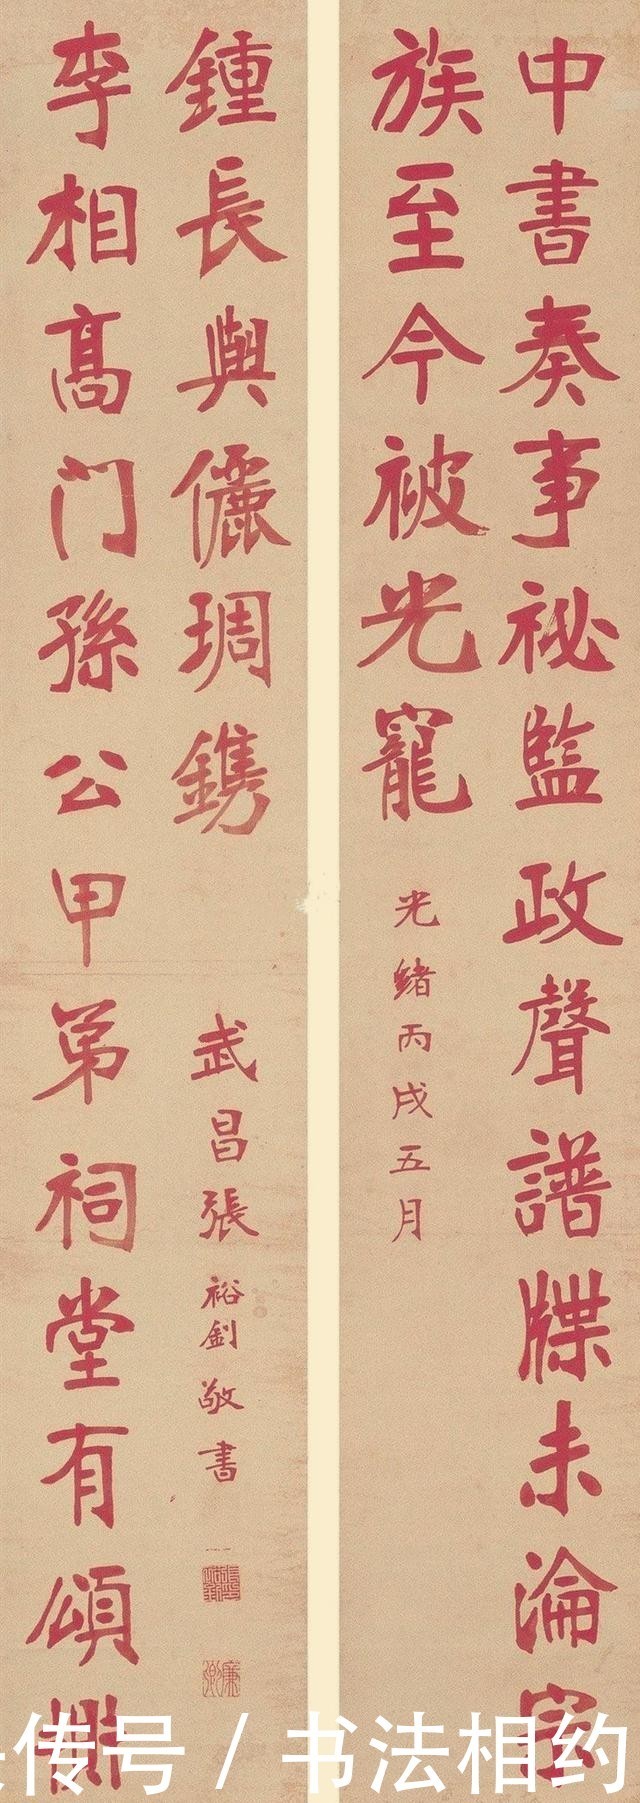 中書奏事祕監政聲譜牒未淪
族至今被光寵
光緒丙戌五月
李相髙门孫公甲弟祠堂有頌
鍾長與儷琱鐫
武昌張裕釗敬書
廉卿
传号 / 书法相约